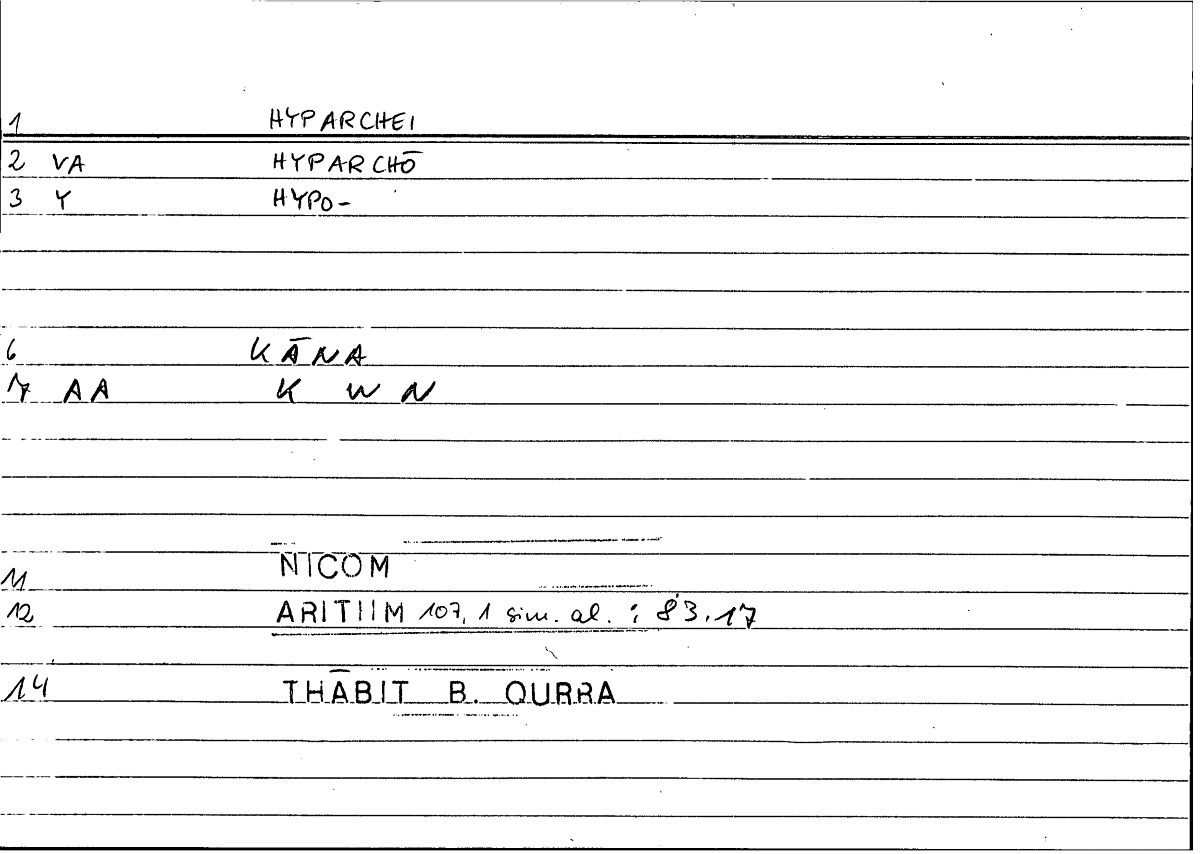 1 HYPARCHEI
2 VA HYPARCHŌ
3 Y HYPO-
6 KĀNA
7 AA K W N
11 NICOM
12 ARITIIM 107, 1 sim. al. : 83.17
14 THĀBIT B. QURRA